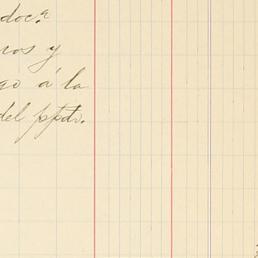 doc.ª
ros y
go á la
del ppdo.